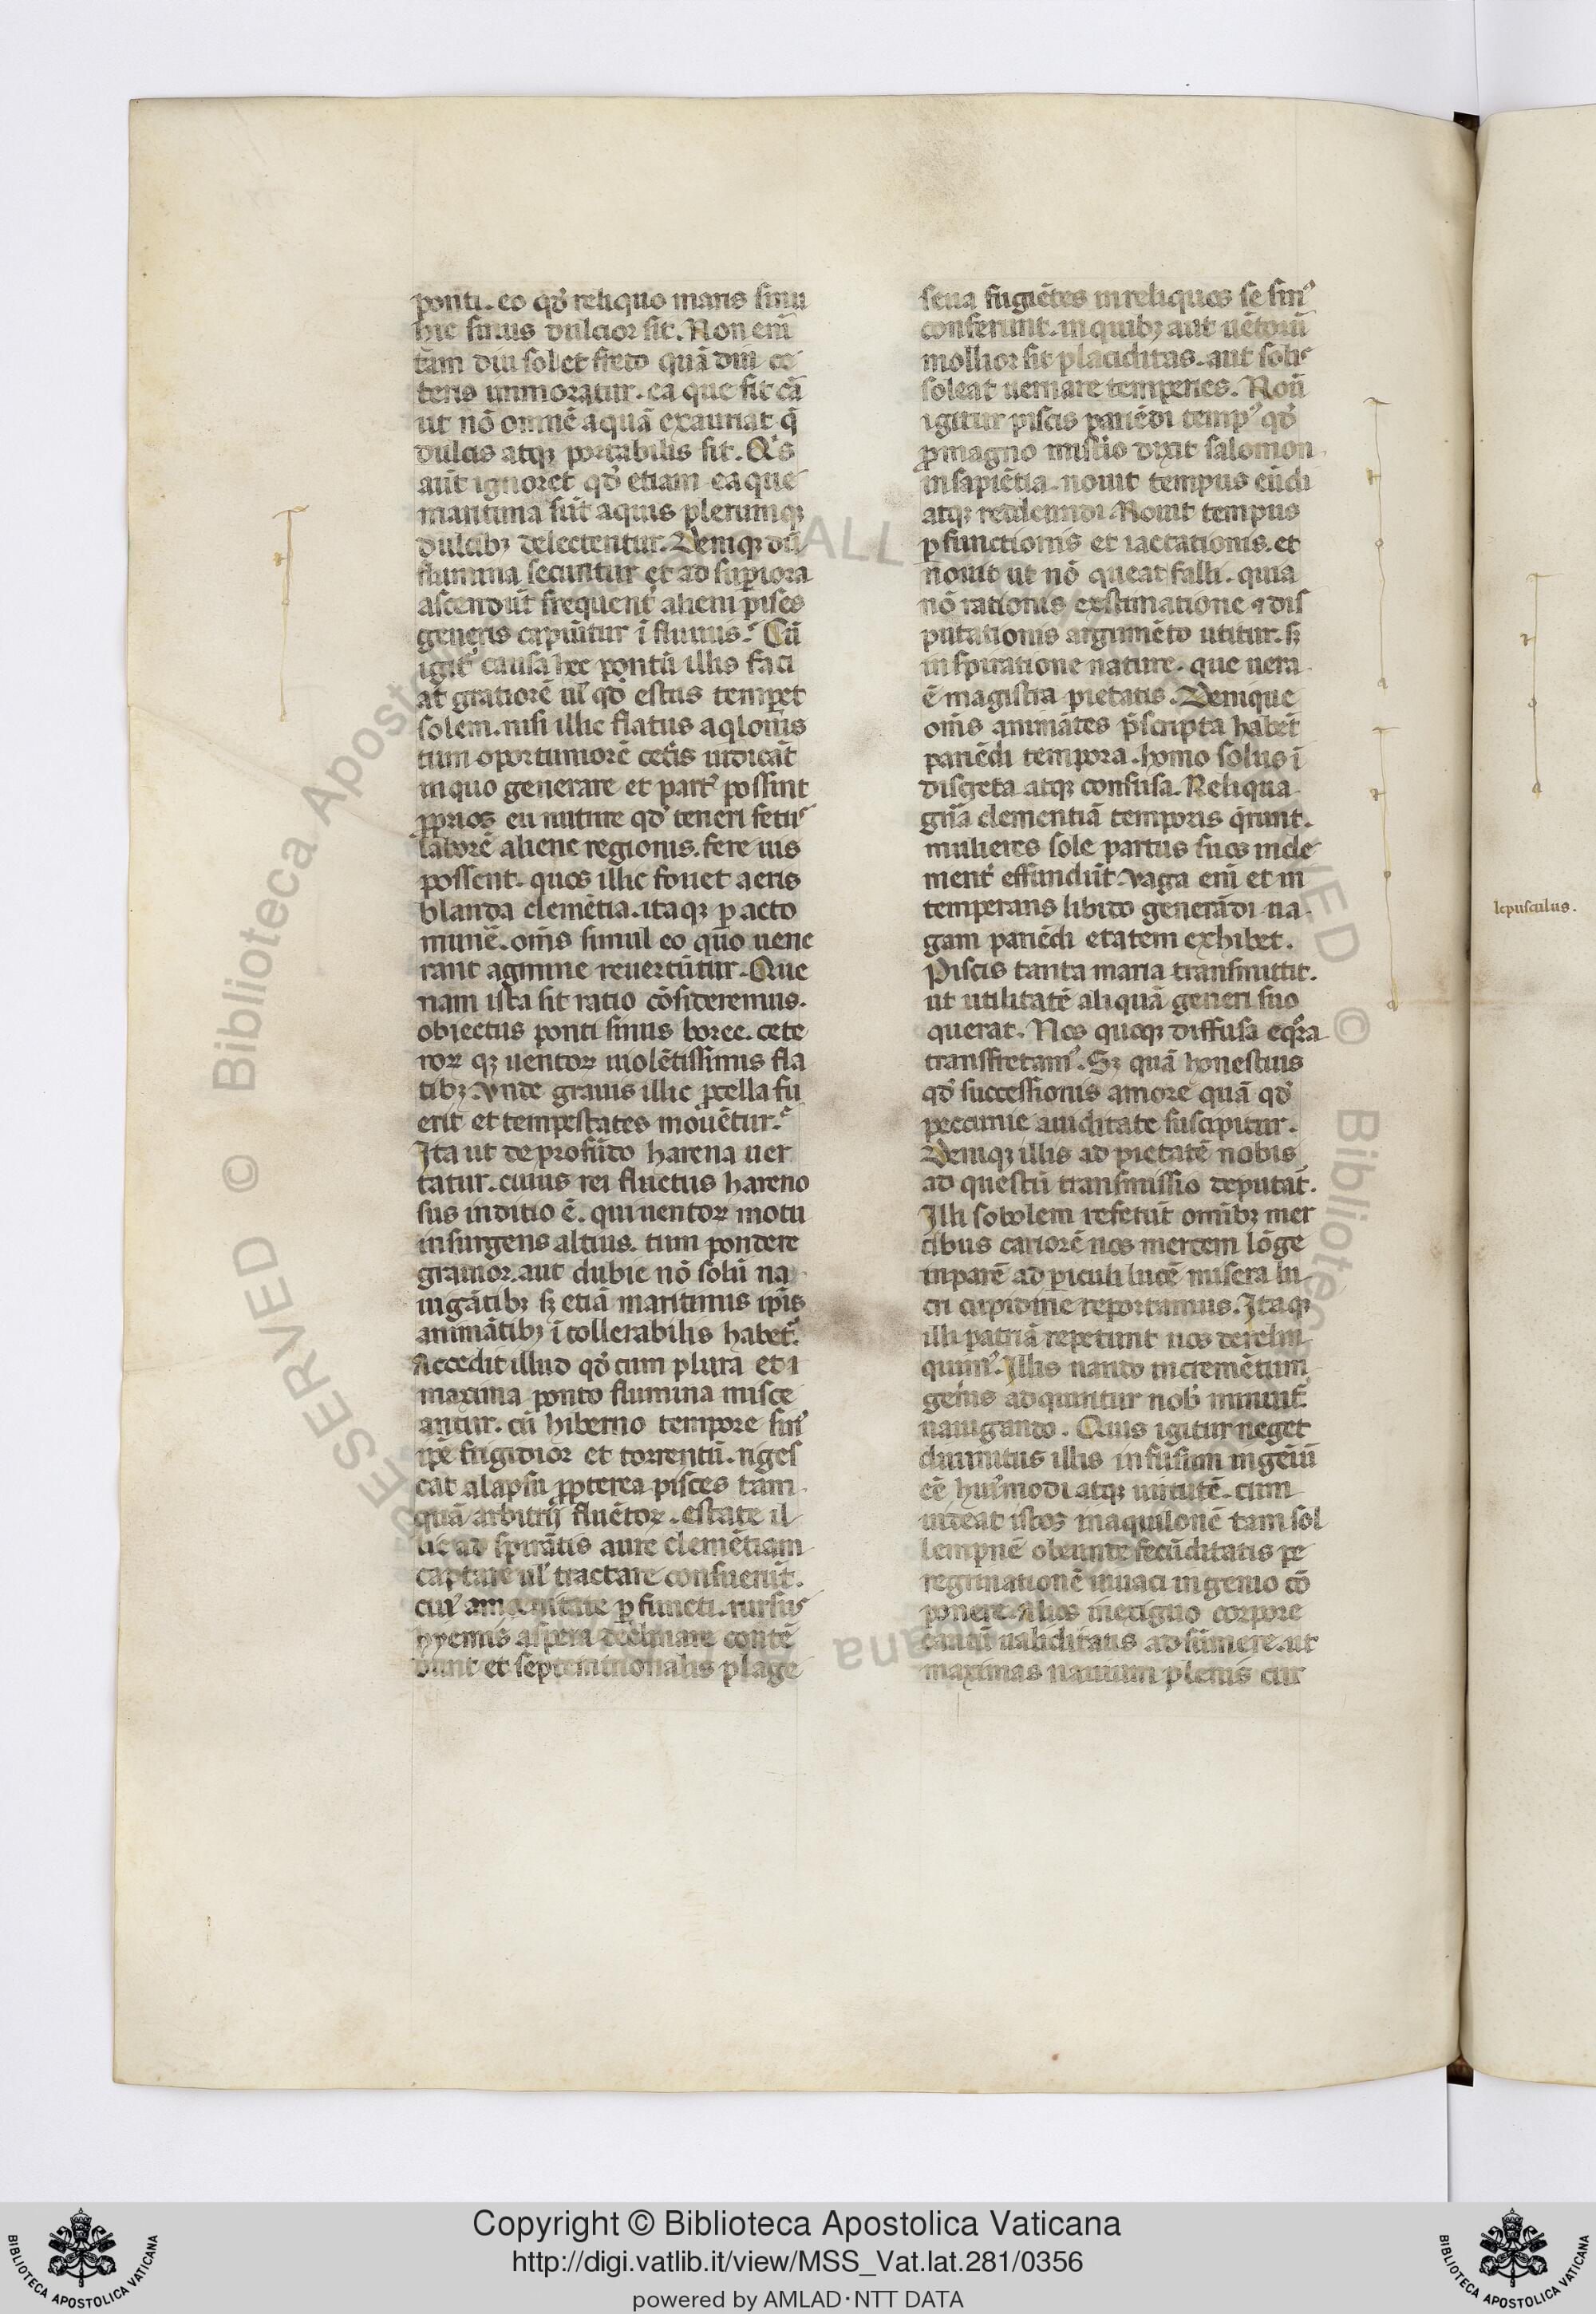 ponti. eo qđ reliquo maris sinu
hic sinus dulcior sit. Non eni᷒
tam diu sol et freto quā diu ce
teris immoratur. ea que sit cā
ut nō omnē aquā exauriat q̄
dulcis atqꝫ portabilis sit. Qͥs
aūt ignoret qđ etiam ea que
maritima sūt aquis plerumqꝫ
dulcibꝫ delectentur. Deniqꝫ dū
flumina secuntur et ad supiora
ascendūt frequent᷒ alieni pisces
generis capiūtur ī fluuiis. Cū
igit᷒ causa hec pontū illis faci
at gratiorē ul̄ qđ estus temꝑet
solem. nisi illic flatus aqlonis
tum oportuniorē cet̄is iudicāt
in quo generare et part᷒ possint
ꝓprios enutrire qđ teneri fetus
laborē aliene regionis. fere uis
possent. quos illic fouet aeris
blanda clemētia. itaqꝫ ꝑacto
munē. om̄s simul eo quo uene
rant agmine reuertūtur. Que
nam ista sit ratio cōsideremus.
obiectus ponti sinus boree. cete
roꝝ qꝫ uentoꝝ uiolētissimus fla
tibꝫ. Vnde grauis illic ꝓcella fu
erit et tempestates mouētur.
Ita ut de profūdo harena uer
tatur. cuius rei fluctus hareno
sus inditio ē. qui uentoꝝ motu
insurgens altius. tum pondere
grauior. aut dubie nō solū na
uigātibꝫ sꝫ etiā maritimis ip̄is
animātibꝫ ītollerabilis habet᷒.
Accedit illud qđ cum plura et i
maxima ponto flumina misce
antur. cū hiberno tempore sin᷒
ip̄e frigidior et torrentū. riges
cat alapsu ꝓpterea pisces tam
quā arbitrij fluētoꝝ. estate il
lic ad spirātis aure clemētiam
captare ul̄ tractare consuerūt.
cui᷒ amenitate ꝑfuncti. rursus
hyemis aspera declinare contē
dunt et septentrionalis plage
seua fugiētes in reliquos se sin᷒
conferunt. in quibꝫ aut uētoruꝫ
mollior sit placiditas. aut solis
soleat uernare temperies. Nouit
igitur piscis pariēdi temp᷒ qđ
ꝓmagno mistio dixit salomon
in sapiētia. nouit tempus eūdi
atqꝫ redeundi. Nouit tempus
ꝑfunctionis et iactationis. et
nouit ut nō queat falli. quia
nō rationis existimatione ⁊ dis
putationis argumēto utitur. sꝫ
inspiratione nature. que uera
ē magistra pietatis. Denique
om̄s animātes p̄scripta habēt
pariēdi tempora. homo solus ī
discreta atqꝫ confusa. Reliqua
gn̄a clementiā temporis q̄runt.
mulieres sole partus suos incle
ment᷒ effundūt. vaga eni᷒ et in
temperans libido generādi ua
gam pariēdi etatem exhibet.
Piscis tanta maria transmittit.
ut utilitatē aliquā generi suo
querat. Nos quoqꝫ diffusa eqͦra
transfretam᷒. Sꝫ quā honestius
qđ successionis amore quā qđ
peccunie auiditate suscipitur.
Deniqꝫ illis ad pietatē nobis
ad questū transmissio deputat᷒.
Illi sobolem referūt omībꝫ mer
cibus cariorē nos mercem lōge
inparē ad ꝑiculi lucē misera lu
cri cupidine reportamus. Itaqꝫ
illi patriā repetunt nos derelin
quim᷒. Illis nando incremētum
generis adquiritur nob᷒ minuit᷒
nauigando. Quis igitur neget
diuinitus illis infusum ingeniū
eē hui᷒modi atqꝫ uirtutē. cum
uideat istos in aquilonē tam sol
lempnē obeunde fecūditatis pe
regrinationē uiuaci ingenio cō
ponere. Alios in exiguo corpore
tantū ualiditatis adsumere. ut
maximas nauium plenis cur
lepusculus.
Copyright © Biblioteca Apostolica Vaticana
http://digi.vatlib.it/view/MSS_Vat.lat.281/0356
powered by AMLAD·NTT DATA